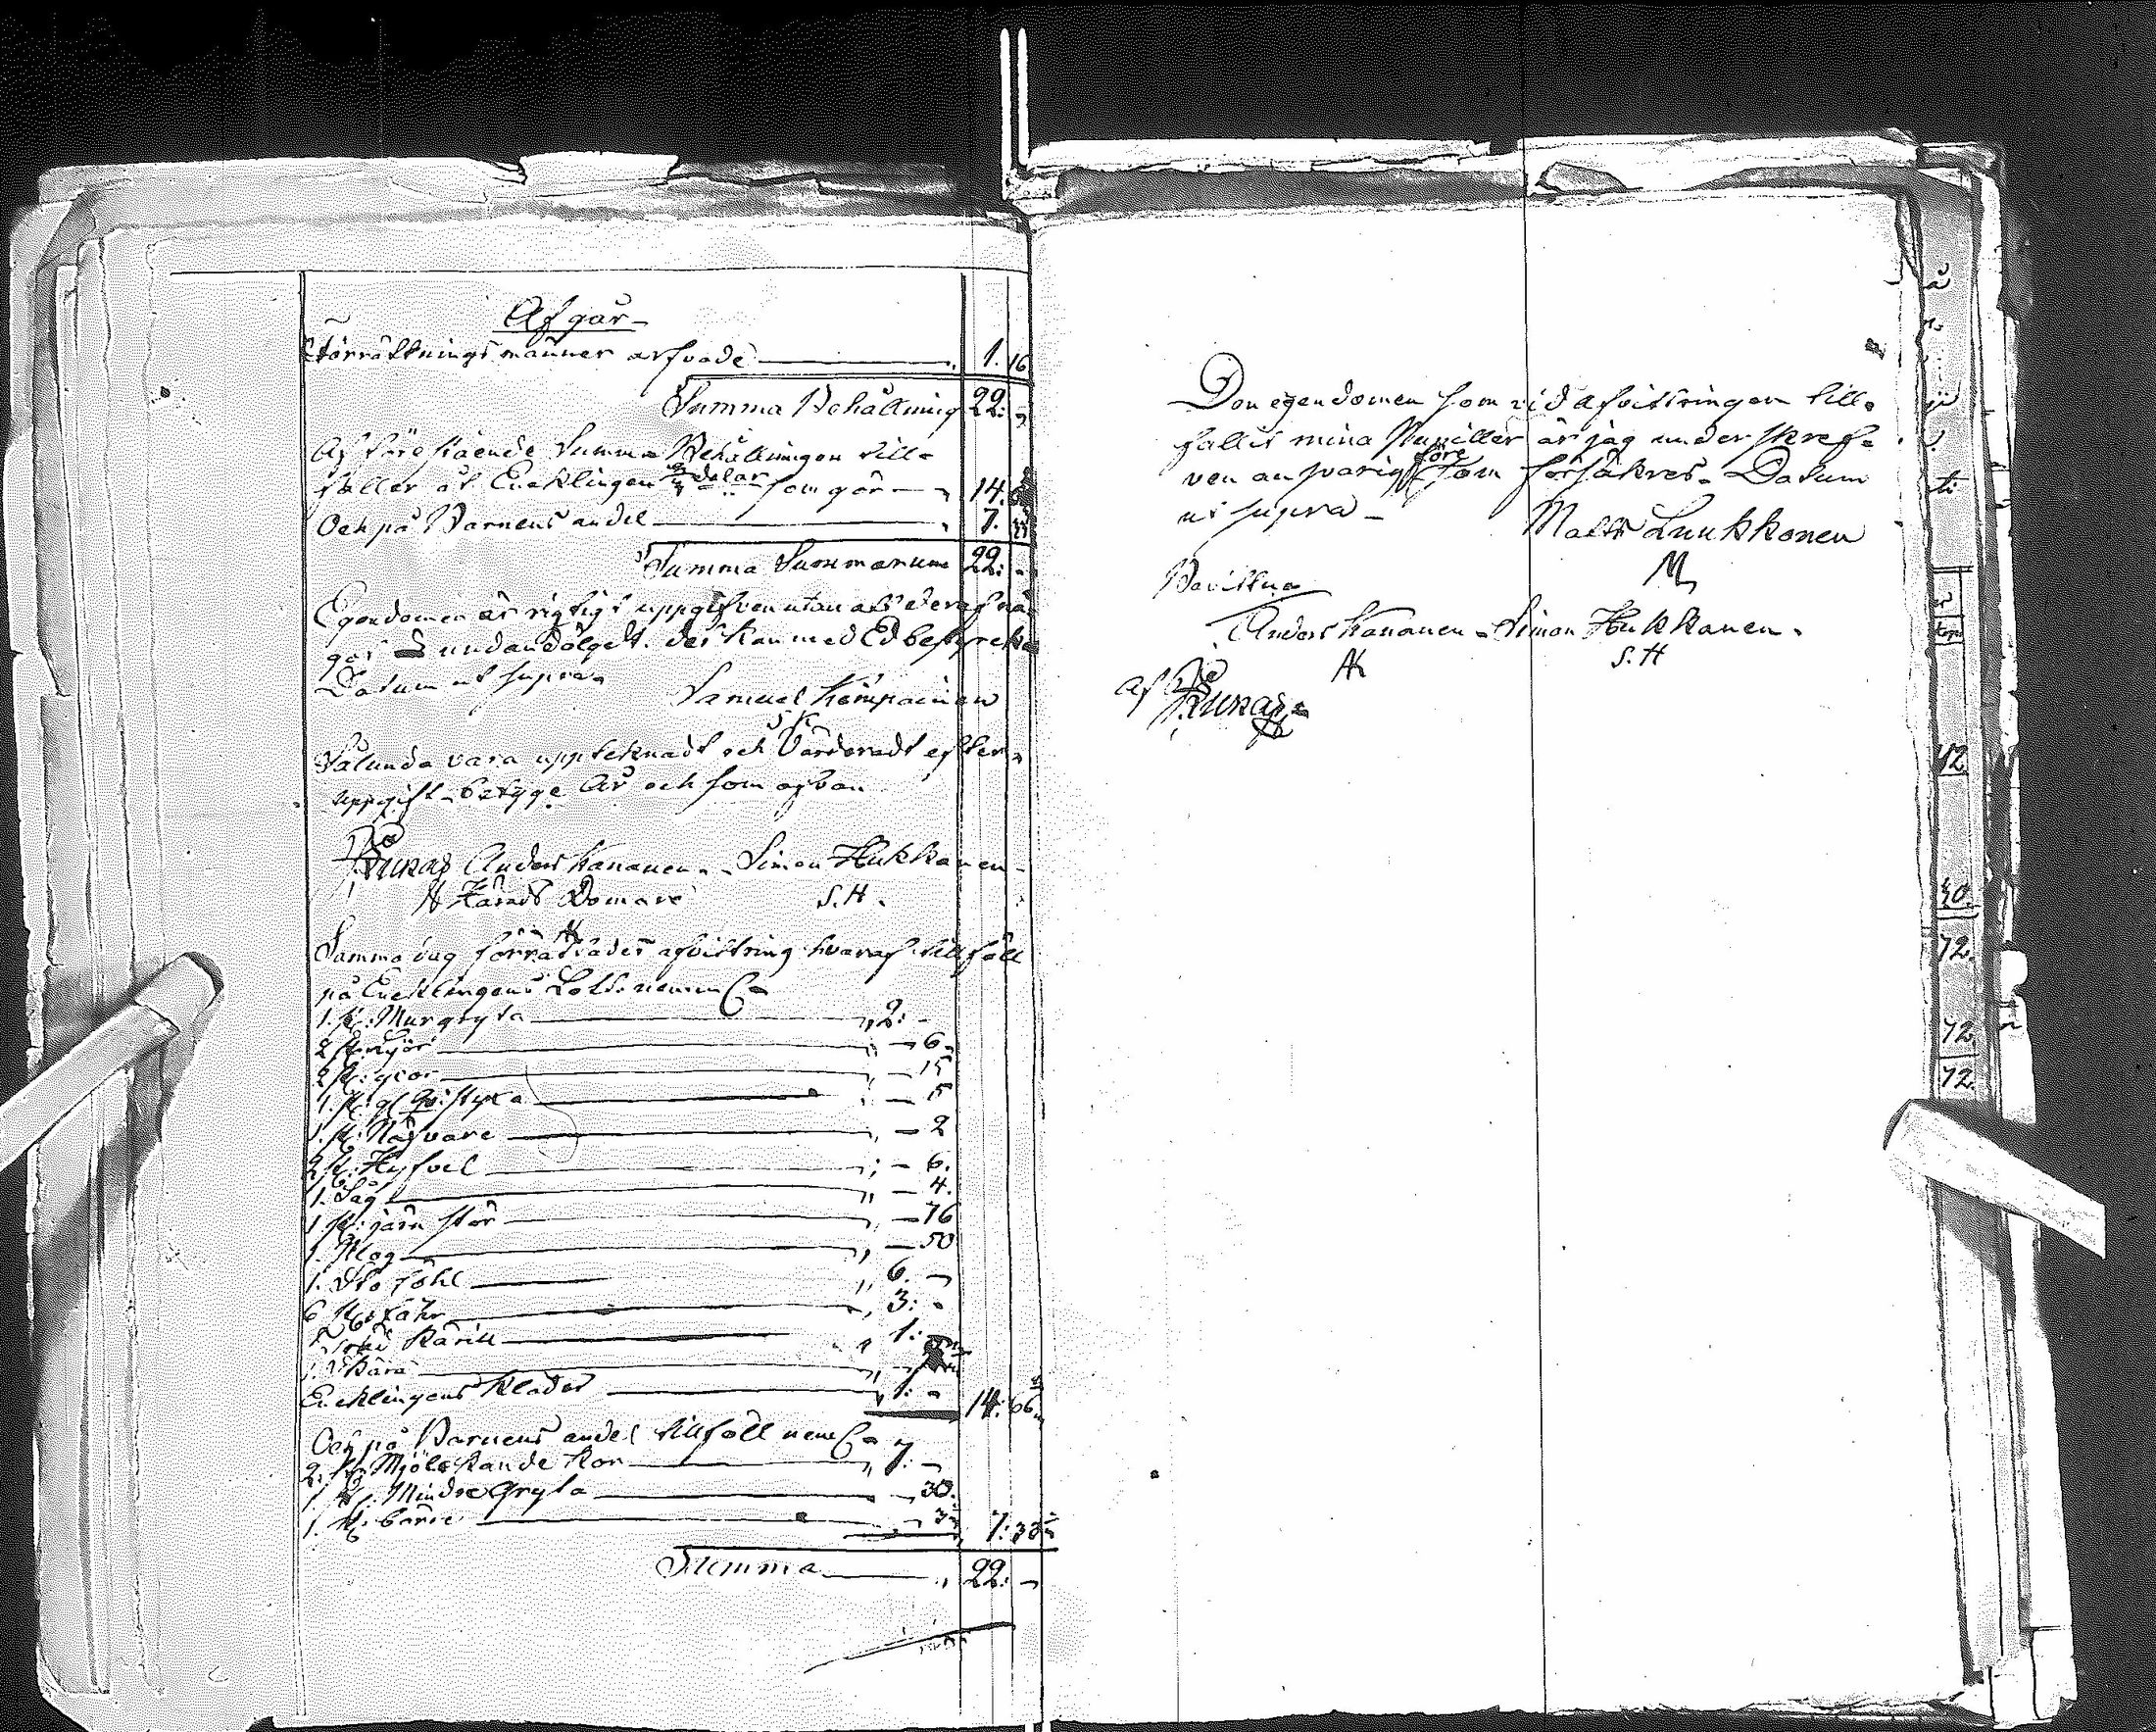 Afgår
Förrättningsmänner arfvode 1. 16
Summa Behållning 22: -
Af föreståénde Summa Behållningen till-
faller åt Encklingen 2/3 delar som gör 14.
Och på Barnens andel 7.
Summa Summarum 22: -
Egendomen är rigtigt uppgifven utan att deraf nå-
got undandölget. det kan med Ed bestyrckes
Datum ut supra
Samuel Kämpainen
S K
Sålunda vara uppteknadt och Värderadt efter
uppgift betyge År och som ofvan
Anders Kananen Simon Hukkanen
Härads Domare S. H.
AK
Samma dag förrättades afvittring hvaraf tillföll
på Encklingens Lott. nemmel.
1. st: Murgryta 2: -
2 st: - 6.
2 st: - 15
1. st: - 5
1. st: Nafvare - 2
2 st: Hyfvel - 6.
1. Såg - 4.
1 st: järn stör - 76
1. Plog - 50
1. Sto föhl 6. -
6 st: fåhr 3: -
kärill 1: -
1. Skära
Encklingens Kläder 1: - 14: 66
Och på Barnens andel tillföll neml.
2. st: Mjölckande kor 7: -
1 st: Mindre Gryta - 30.
1. st: 7: 33
Summa 22: -
Den egendomen som vid afvittringen till-
fallit mina Pupiller är jag under skref-
ven ansvarig före som försäkres. Datum
ut supra
Matts Luukkonen
M
Bevittna
Anders Kananen Simon Hukkanen.
AK S. H
af
42
40.
72.
72.
72.